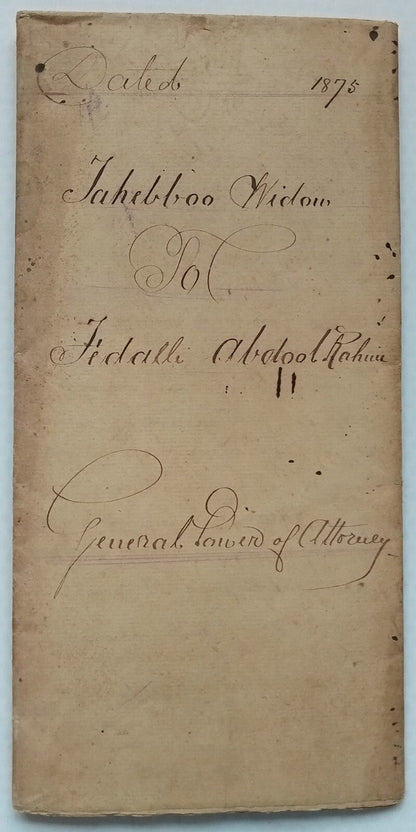 Dated 1875
Jahebboo Widow
To
Fedalli Abdool Rahim
General Power of Attorney